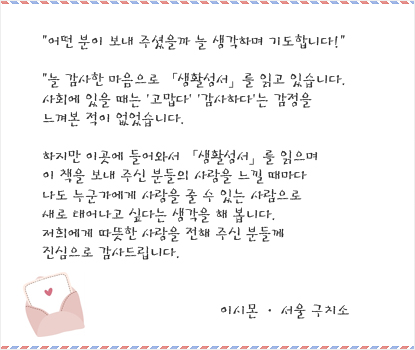 "어떤 분이 보내 주셨을까 늘 생각하며 기도합니다!"
"늘 감사한 마음으로 「생활성서」를 읽고 있습니다.
사회에 있을 때는 '고맙다' '감사하다'는 감정을
느껴본 적이 없었습니다.
하지만 이곳에 들어와서 「생활성서」를 읽으며
이 책을 보내 주신 분들의 사랑을 느낄 때마다
나도 누군가에게 사랑을 줄 수 있는 사람으로
새로 태어나고 싶다는 생각을 해 봅니다.
저희에게 따뜻한 사랑을 전해 주신 분들께
진심으로 감사드립니다.
이시몬 · 서울 구치소